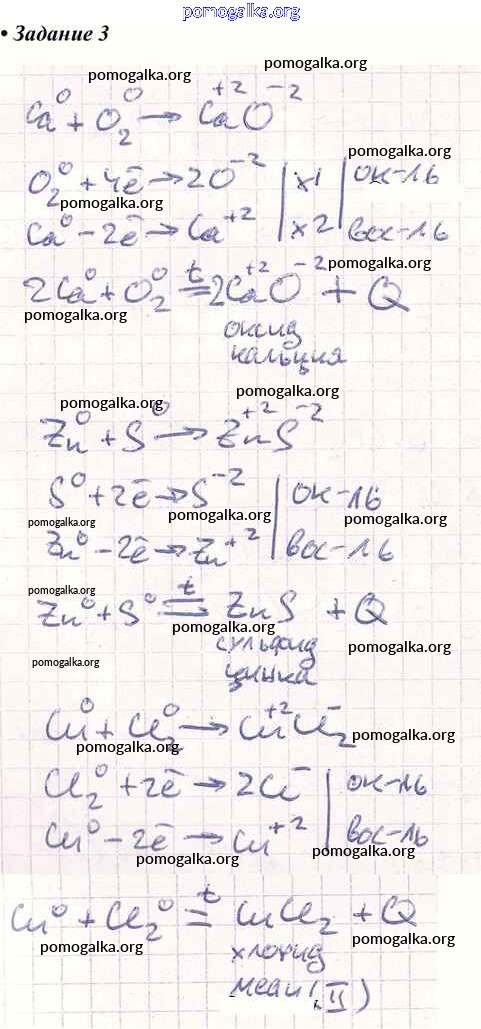 pomogalka.org
• Задание 3
pomogalka.org
Ca⁰ + O₂⁰ → Ca⁺²O⁻²
pomogalka.org
O₂⁰ + 4ē → 2O⁻² | x1 | ок-ль
pomogalka.org
Ca⁰ - 2ē → Ca⁺² | x2 | вос-ль
pomogalka.org
2Ca⁰ + O₂⁰ =ᵗ 2Ca⁺²O⁻² + Q
pomogalka.org
оксид
кальция
pomogalka.org
pomogalka.org
Zn⁰ + S⁰ → Zn⁺²S⁻²
S⁰ + 2ē → S⁻² | ок-ль
pomogalka.org pomogalka.org pomogalka.org
Zn⁰ - 2ē → Zn⁺² | вос-ль
pomogalka.org
Zn⁰ + S⁰ =ᵗ ZnS + Q
pomogalka.org
сульфид
pomogalka.org
pomogalka.org
цинка
Cu⁰ + Cl₂⁰ → Cu⁺²Cl₂⁻
pomogalka.org
pomogalka.org
Cl₂⁰ + 2ē → 2Cl⁻ | ок-ль
Cu⁰ - 2ē → Cu⁺² | вос-ль
pomogalka.org pomogalka.org
Cu⁰ + Cl₂⁰ =ᵗ CuCl₂ + Q
pomogalka.org pomogalka.org
хлорид
меди (II)